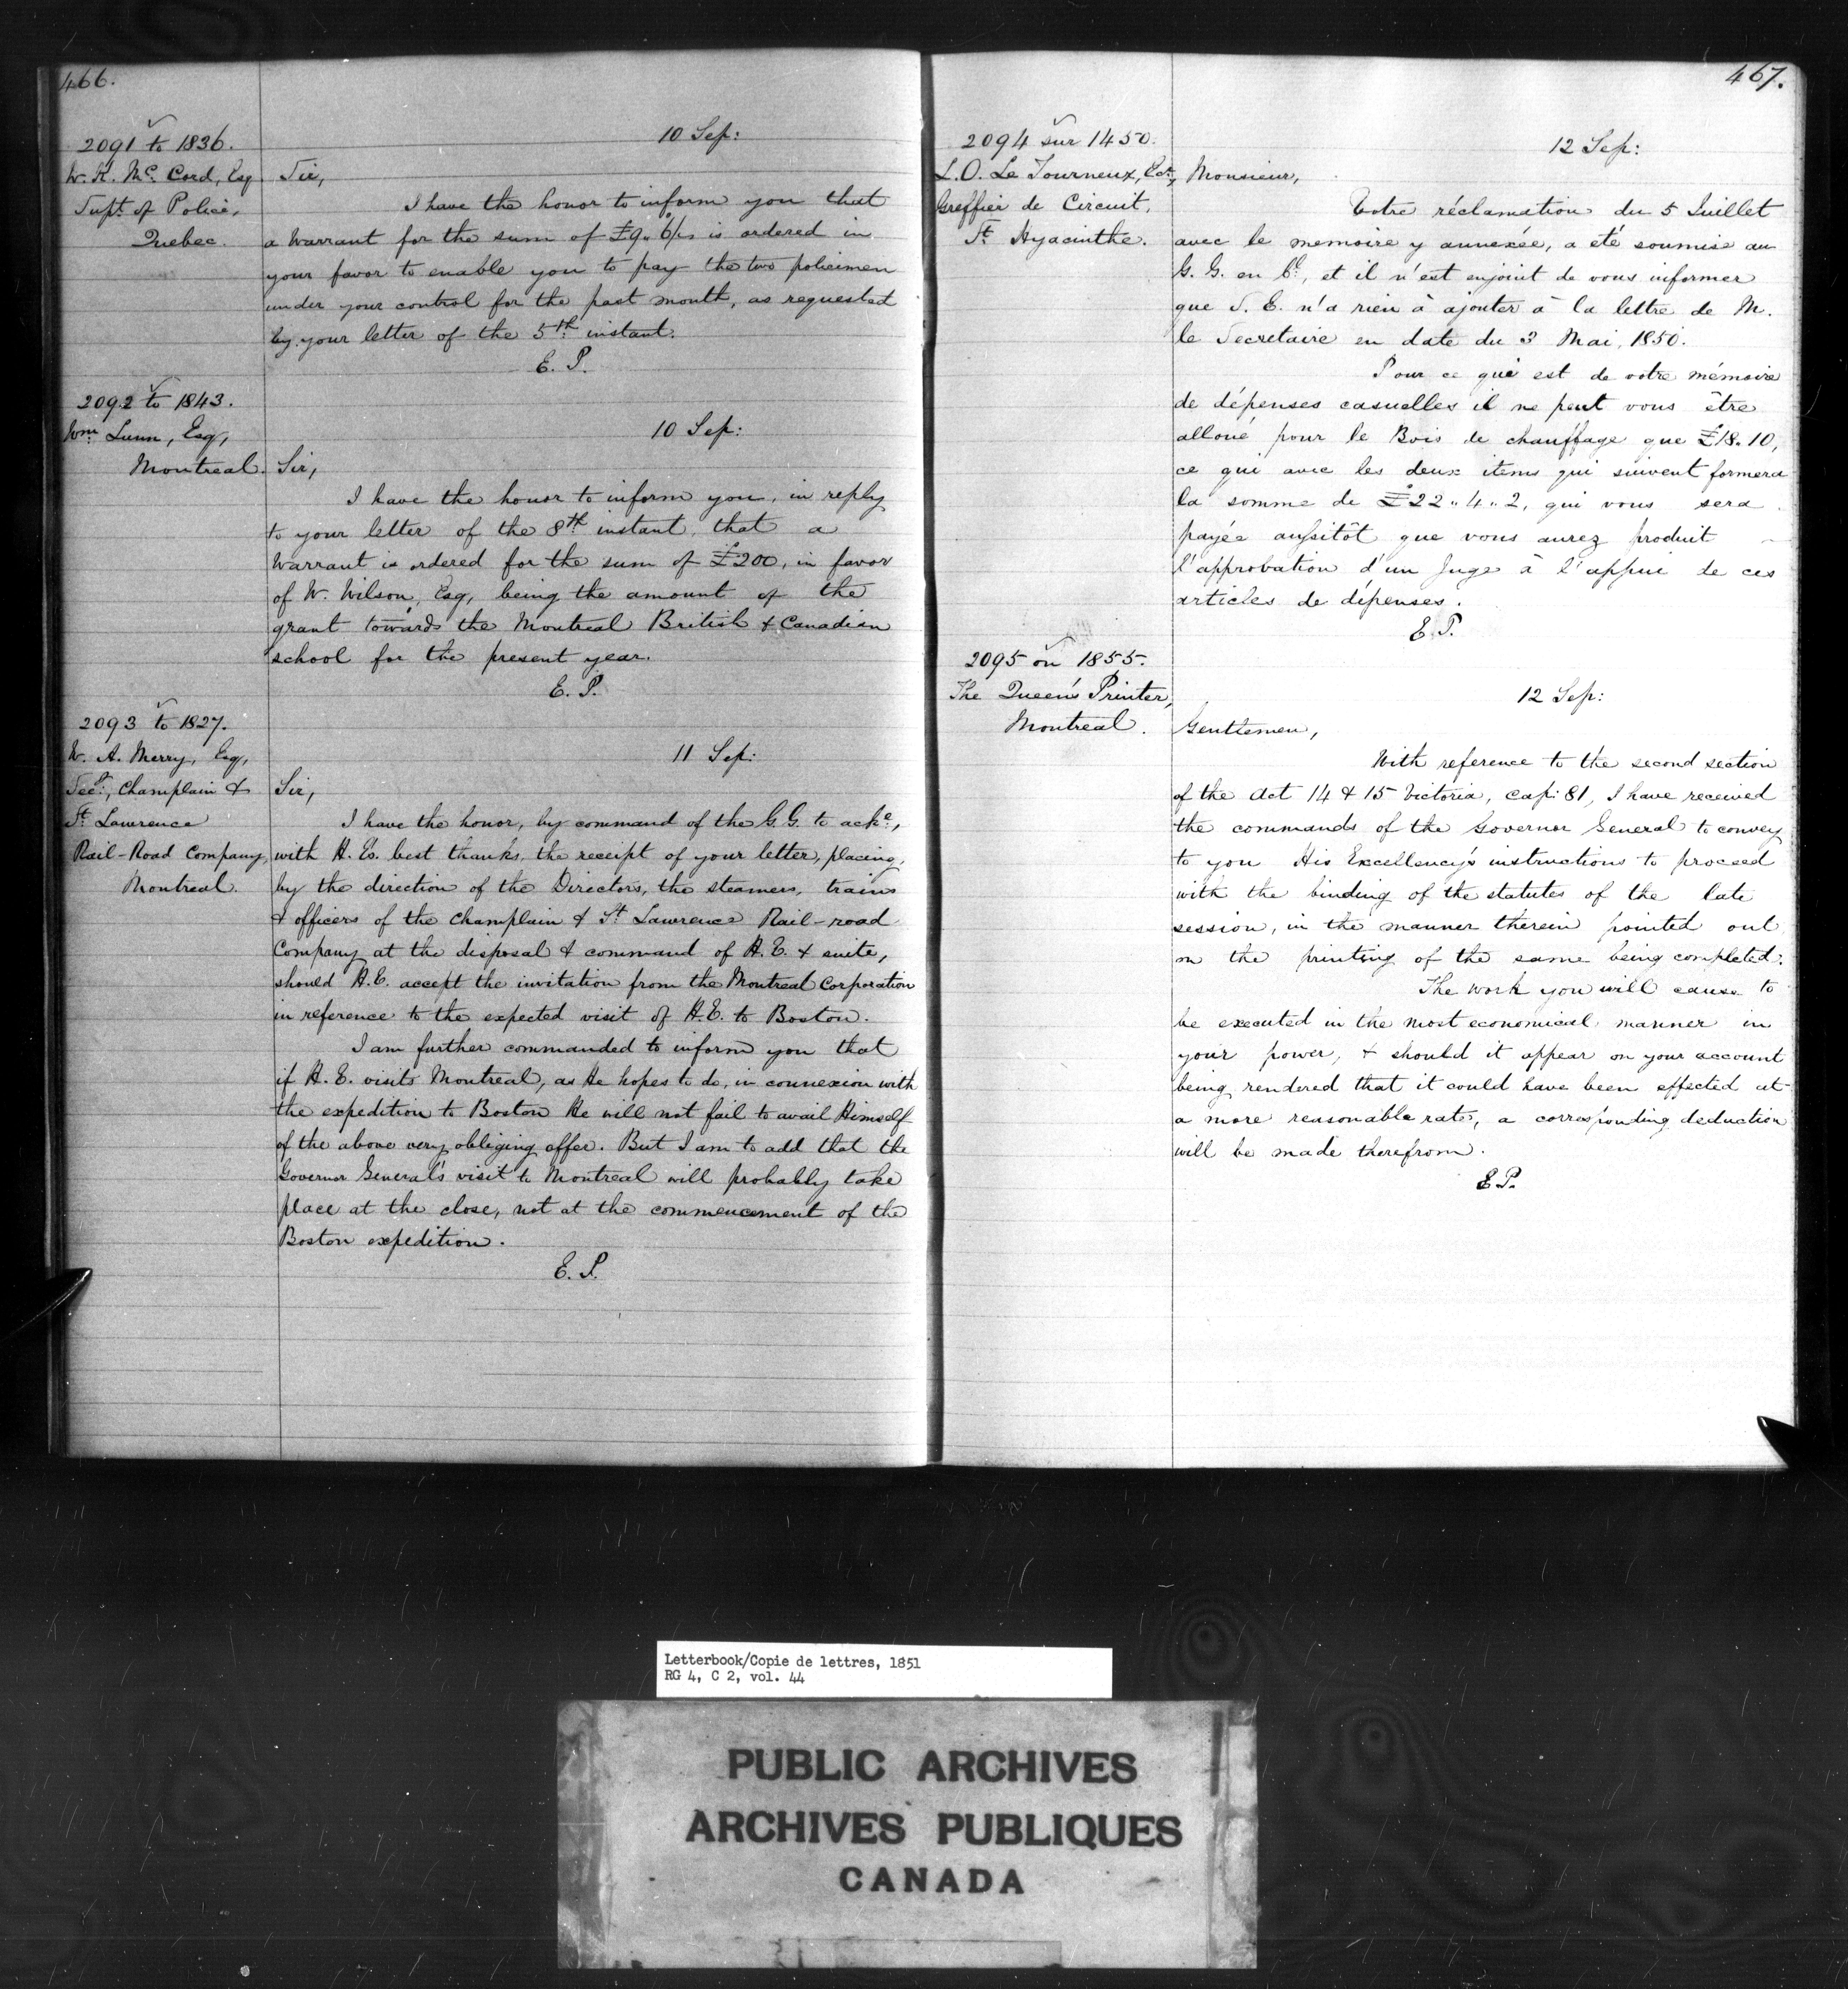 466.
2091 to 1836.
W. K. Mc. Cord, Esq
Supt. of Police,
Quebec.
10 Sep:
Sir,
I have the honor to inform you that
a Warrant for the sum of £9. 6/ is ordered in
your favor to enable you to pay the two policemen
under your control for the past month, as requested
by your letter of the 5th instant.
E. P.
2092 to 1843.
Wm Lunn, Esq,
Montreal.
10 Sep:
Sir,
I have the honor to inform you, in reply
to your letter of the 8th instant that a
Warrant is ordered for the sum of £200, in favor
of W. Wilson, Esq, being the amount of the
grant towards the Montreal British & Canadian
school for the present year.
E. P.
2093 to 1827.
W. A. Merry, Esq,
Secy., Champlain &
St Lawrence
Rail-Road Company,
Montreal.
11 Sep:
Sir,
I have the honor, by command of the G.G. to acke,
with H. Es. best thanks, the receipt of your letter, placing,
by the direction of the Directors, the steamers, trains
& officers of the Champlain & St Lawrence Rail-road
Company at the disposal & command of H.E. & suite,
should H.E. accept the invitation from the Montreal Corporation
in reference to the expected visit of H.E. to Boston.
I am further commanded to inform you that
if H.E. visits Montreal, as He hopes to do, in connexion with
the expedition to Boston He will not fail to avail Himself
of the above very obliging offer. But I am to add that the
Governor General's visit to Montreal will probably take
place at the close, not at the commencement of the
Boston expedition.
E. P.
467.
2094 sur 1450.
L. O. Le Tourneux, Ecr,
Greffier de Circuit,
St. Hyacinthe.
12 Sep:
Monsieur,
Votre réclamation du 5 Juillet
avec le memoire y annexée, a été soumise au
G. G. en Cl., et il m'est enjoint de vous informer
que S. E. n'a rien à ajouter à la lettre de M.
le Secretaire en date du 3 Mai, 1850.
Pour ce qui est de votre mémoire
de dépenses casuelles il ne peut vous être
alloué pour le Bois de chauffage que £18. 10,
ce qui avec les deux items qui suivent formera
la somme de £22.. 4.. 2, qui vous sera
payée aussitôt que vous aurez produit
l'approbation d'un Juge à l'appui de ces
articles de dépenses.
E. P.
2095 on 1855.
The Queen's Printer,
Montreal.
12 Sep:
Gentlemen,
With reference to the second section
of the Act 14 & 15 Victoria, cap: 81, I have received
the commands of the Governor General to convey
to you His Excellency's instructions to proceed
with the binding of the statutes of the late
session, in the manner therein pointed out
on the printing of the same being completed.
The work you will cause to
be executed in the most economical manner in
your power, & should it appear on your account
being rendered that it could have been effected at
a more reasonable rate, a corresponding deduction
will be made therefrom.
E. P.
Letterbook/Copie de lettres, 1851
RG 4, C 2, vol. 44
PUBLIC ARCHIVES
ARCHIVES PUBLIQUES
CANADA